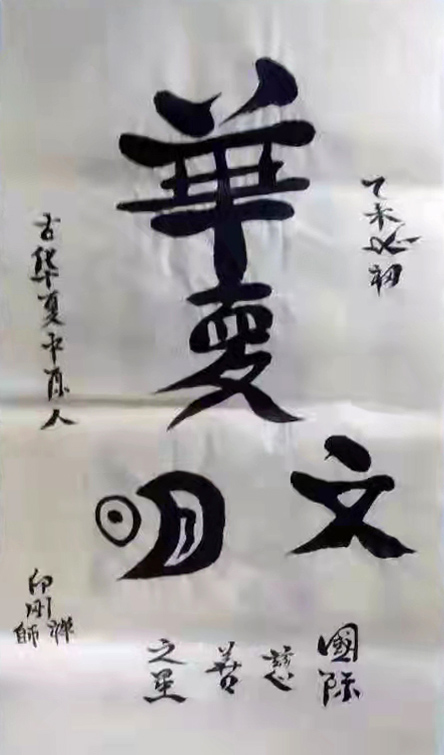 乙未初
華夏
文明
古华夏中原人
國际
慈
善
之星
印刚
禅師